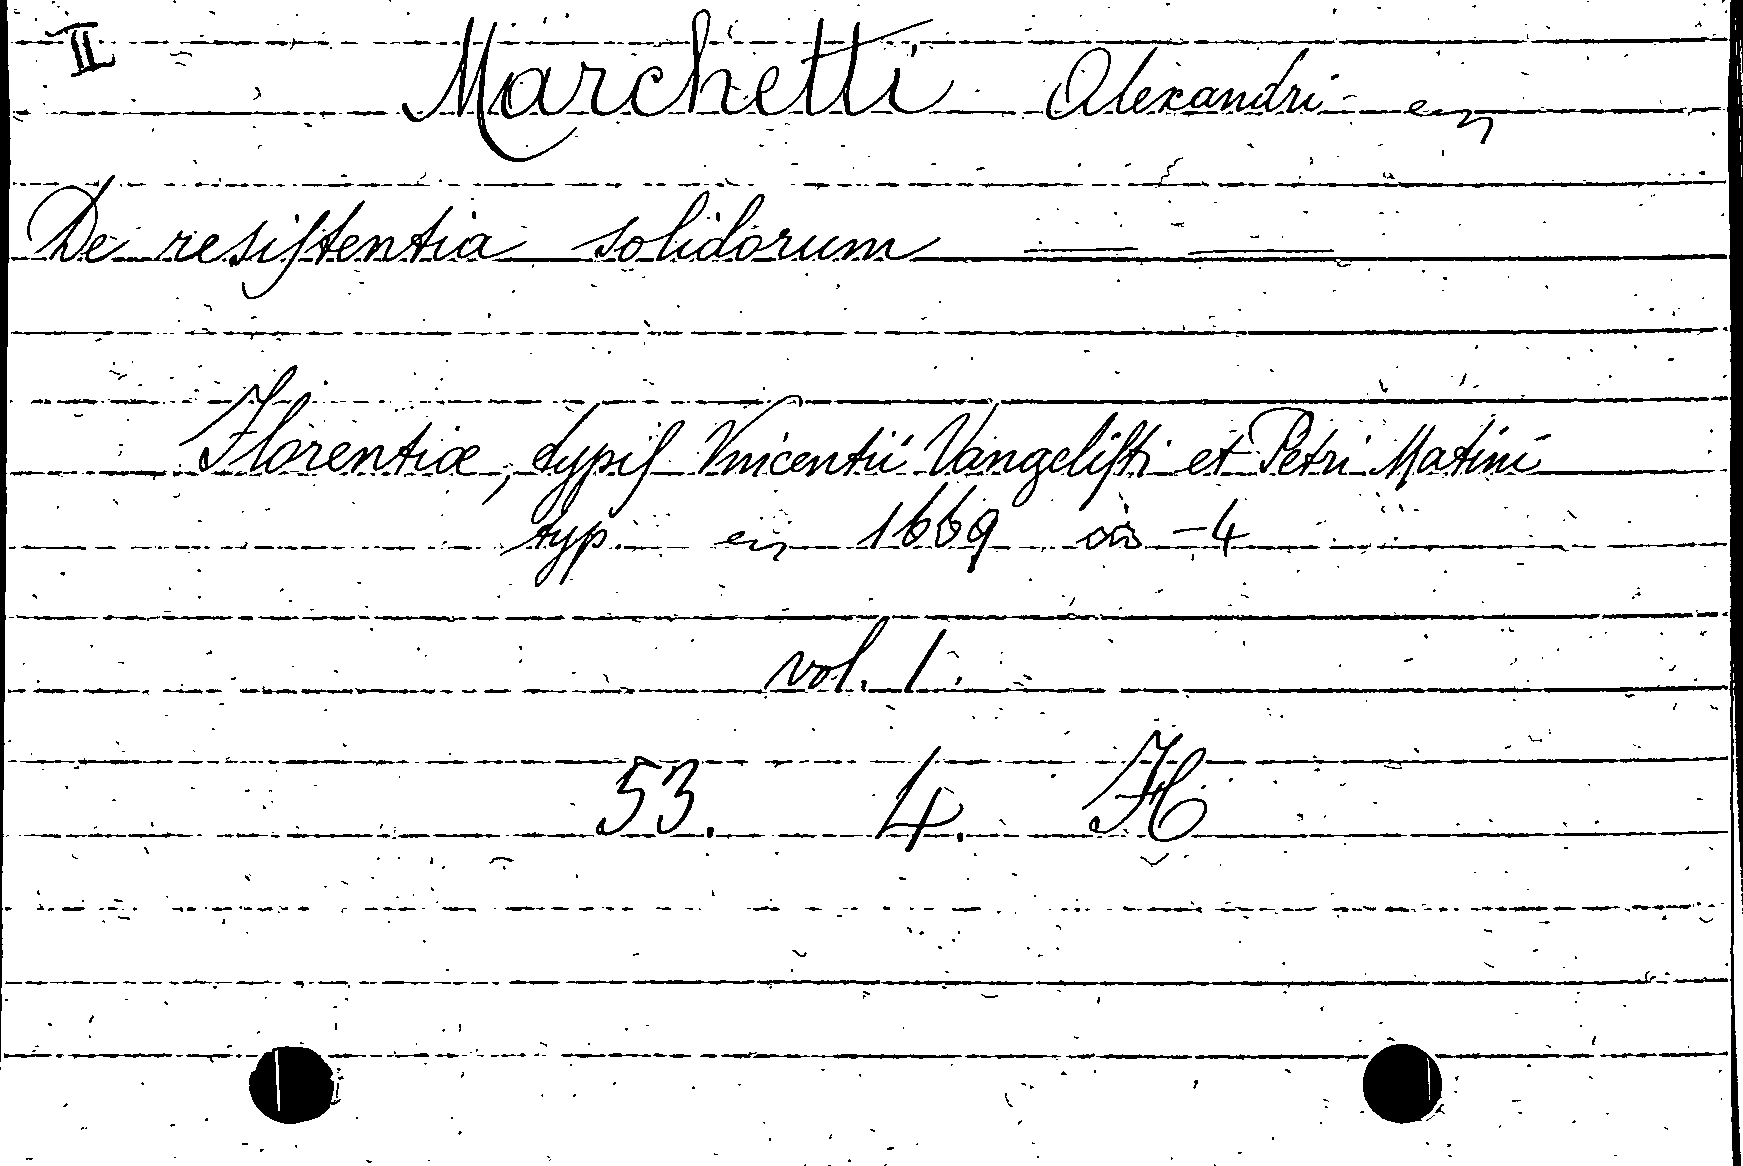 II
Marchetti Alexandri en
De resiſtentia solidorum
Florentiæ, typiſ Vincentii Vangeliſti et Petri Matini
typ. en 1669 in -4
vol. 1.
53. 4. H